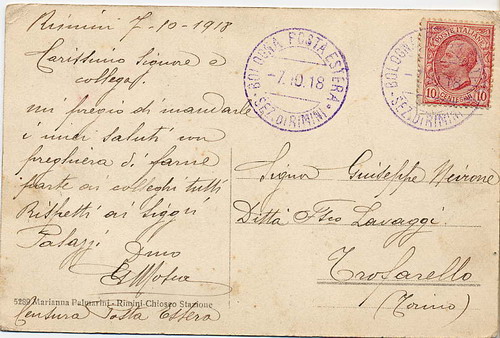 Rimini 7-10-1918
Carissimo Signore e
collega.
mi pregio di mandarle
i miei saluti con
preghiera di farne
parte ai colleghi tutti
Rispetti ai Siggri
Palazzi
Dmo
5289 Marianna Palmarini - Rimini-Chiosco Stazione
Censura Posta Estera
BOLOGNA POSTA ESTERA
-7.10.18
SEZ. DI RIMINI
POSTE ITALIANE
10 CENTESIMI 10
BOLOGNA
SEZ. DI RIMINI
Signor Giuseppe Neirone
Ditta Lavaggi
Trofarello
(Torino)